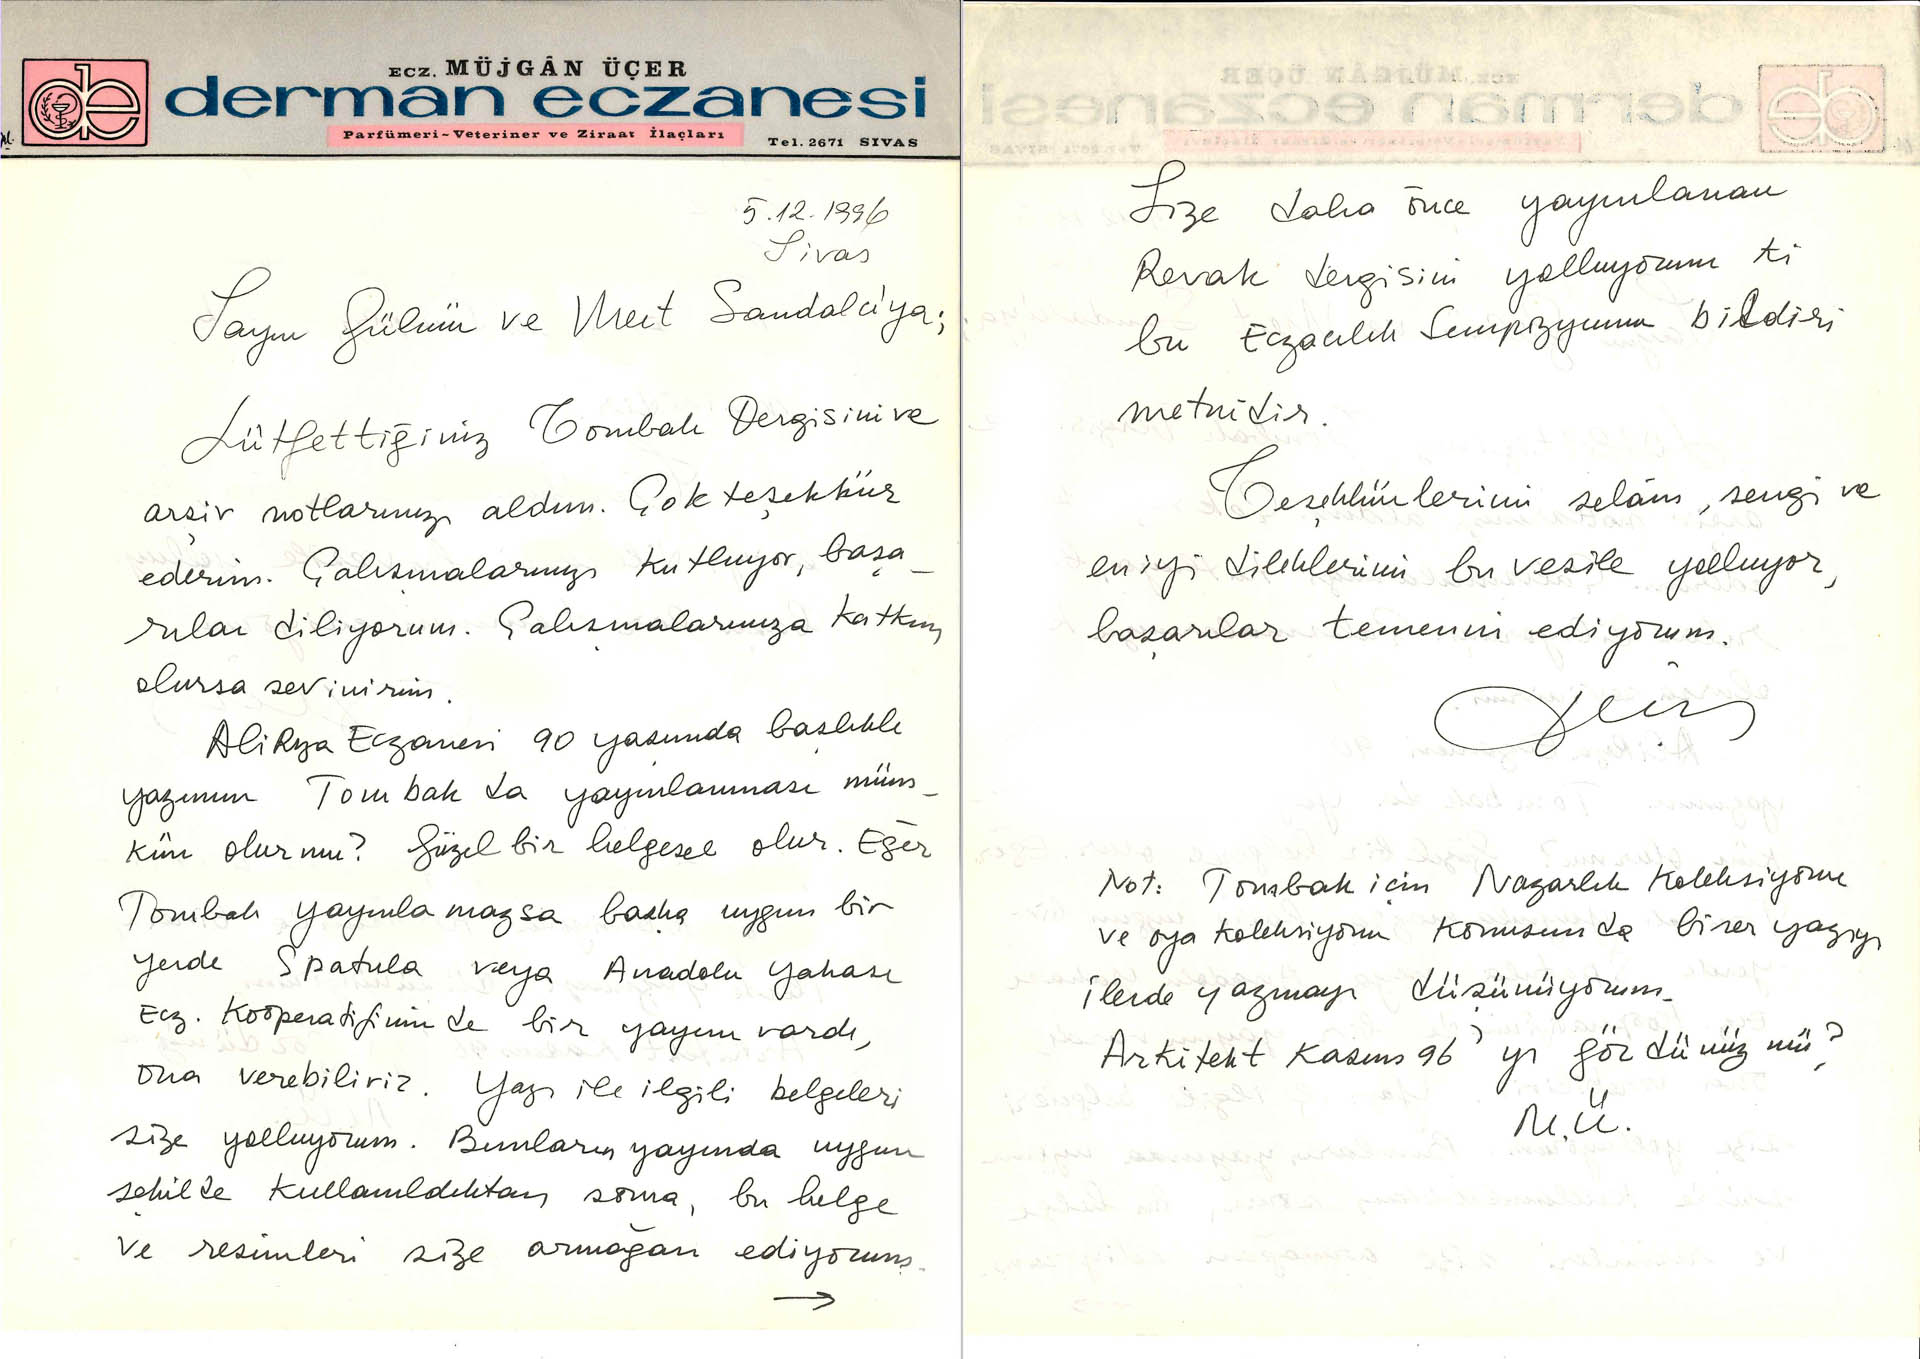 ECZ. MÜJGÂN ÜÇER
derman eczanesi
Parfümeri-Veteriner ve Ziraat İlaçları
Tel. 2671 SIVAS
5.12.1996
Sivas
Sayın Gülnür ve Mert Sandalcı'ya;
Lütfettiğiniz Tombak Dergisini ve
arşiv notlarınızı aldım. Çok teşekkür
ederim. Çalışmalarınızı kutluyor, başa_
rılar diliyorum. Çalışmalarınıza katkım
olursa sevinirim.
Ali Rıza Eczanesi 90 yaşında başlıklı
yazımın Tombak da yayınlanması müm_
kün olur mu? Güzel bir belgesel olur. Eğer
Tombak yayınlamazsa başka uygun bir
yerde Spatula veya Anadolu Yakası
Ecz. Kooperatifinin de bir yayını vardı,
ona verebiliriz. Yazı ile ilgili belgeleri
size yolluyorum. Bunların yayında uygun
şekilde kullanıldıktan sonra, bu belge
ve resimleri size armağan ediyorum.
→
Size daha önce yayınlanan
Revak dergisini yolluyorum ki
bu Eczacılık Sempozyumu bildiri
metnidir.
Teşekkürlerimi selâm, sevgi ve
en iyi dileklerimi bu vesile yolluyor,
başarılar temenni ediyorum.
Not: Tombak için Nazarlık Koleksiyonu
ve oya koleksiyonu konusunda birer yazıyı
ilerde yazmayı düşünüyorum.
Arkitekt Kasım 96' yı gördünüz mü?
M.Ü.